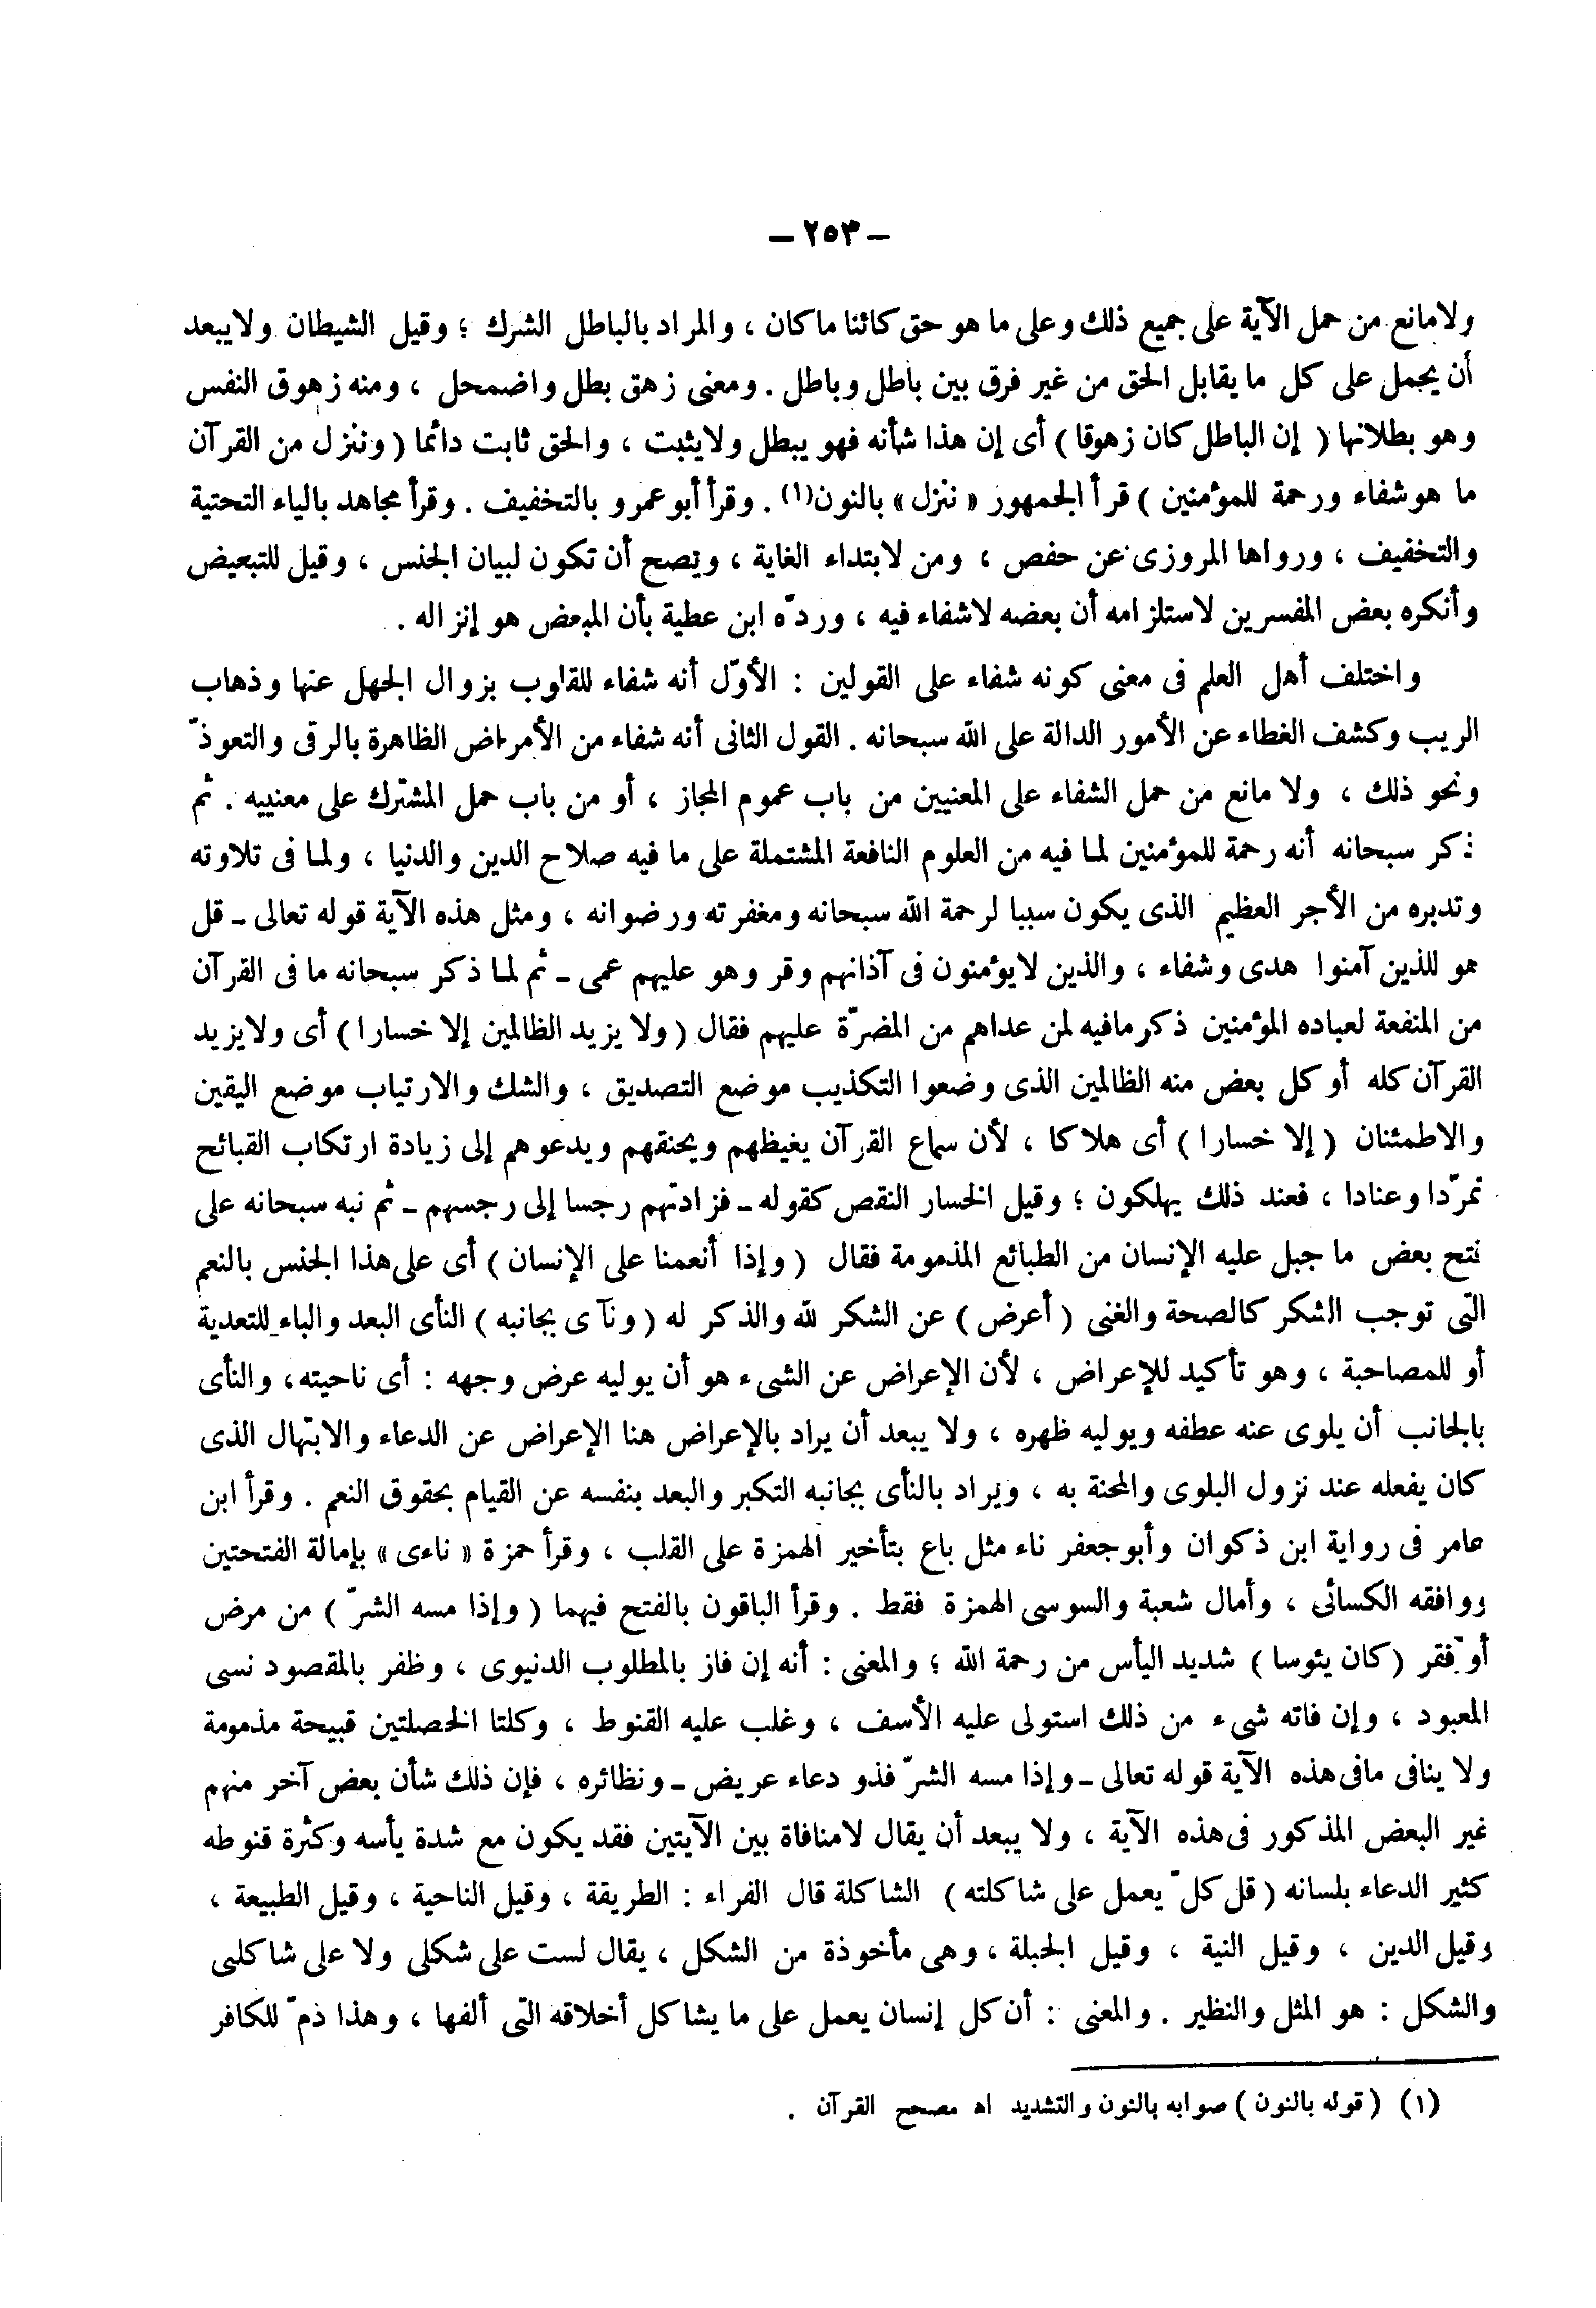 – ٢٥٣ –
ولامانع من حمل الآية على جميع ذلك وعلى ما هو حق كائنا ماكان ، والمراد بالباطل الشرك ؛ وقيل الشيطان ولايبعد
أن يحمل على كل ما يقابل الحق من غير فرق بين باطل وباطل . ومعنى زهق بطل واضمحل ، ومنه زهوق النفس
وهو بطلانها ( إن الباطل كان زهوقا ) أى إن هذا شأنه فهو يبطل ولايثبت ، والحق ثابت دائما ( وننزل من القرآن
ما هو شفاء ورحمة للمؤمنين ) قرأ الجمهور « ننزل » بالنون(١) . وقرأ أبو عمرو بالتخفيف . وقرأ مجاهد بالياء التحتية
والتخفيف ، ورواها المروزى عن حفص ، ومن لابتداء الغاية ، ويصح أن تكون لبيان الجنس ، وقيل للتبعيض
وأنكره بعض المفسرين لاستلزامه أن بعضه لاشفاء فيه ، وردّه ابن عطية بأن المبعض هو إنزاله .
واختلف أهل العلم فى معنى كونه شفاء على القولين : الأوّل أنه شفاء للقلوب بزوال الجهل عنها وذهاب
الريب وكشف الغطاء عن الأمور الدالة على الله سبحانه . القول الثانى أنه شفاء من الأمراض الظاهرة بالرقى والتعوذّ
ونحو ذلك ، ولا مانع من حمل الشفاء على المعنيين من باب عموم المجاز ، أو من باب حمل المشترك على معنييه . ثم
ذكر سبحانه أنه رحمة للمؤمنين لما فيه من العلوم النافعة المشتملة على ما فيه صلاح الدين والدنيا ، ولما فى تلاوته
وتدبره من الأجر العظيم الذى يكون سببا لرحمة الله سبحانه ومغفرته ورضوانه ، ومثل هذه الآية قوله تعالى ـ قل
هو للذين آمنوا هدى وشفاء ، والذين لايؤمنون فى آذانهم وقر وهو عليهم عمى ـ ثم لما ذكر سبحانه ما فى القرآن
من المنفعة لعباده المؤمنين ذكر مافيه لمن عداهم من المضرّة عليهم فقال ( ولا يزيد الظالمين إلا خسارا ) أى ولايزيد
القرآن كله أو كل بعض منه الظالمين الذى وضعوا التكذيب موضع التصديق ، والشك والارتياب موضع اليقين
والاطمئنان ( إلا خسارا ) أى هلاكا ، لأن سماع القرآن يغيظهم ويحنقهم ويدعوهم إلى زيادة ارتكاب القبائح
تمرّدا وعنادا ، فعند ذلك يهلكون ؛ وقيل الخسار النقص كقوله ـ فزادتهم رجسا إلى رجسهم ـ ثم نبه سبحانه على
نتح بعض ما جبل عليه الإنسان من الطبائع المذمومة فقال ( وإذا أنعمنا على الإنسان ) أى على هذا الجنس بالنعم
التى توجب الشكر كالصحة والغنى ( أعرض ) عن الشكر لله والذكر له ( ونآى بجانبه ) النأى البعد والباء للتعدية
أو للمصاحبة ، وهو تأكيد للإعراض ، لأن الإعراض عن الشىء هو أن يوليه عرض وجهه : أى ناحيته، والنأى
بالجانب أن يلوى عنه عطفه ويوليه ظهره ، ولا يبعد أن يراد بالإعراض هنا الإعراض عن الدعاء والابتهال الذى
كان يفعله عند نزول البلوى والمحنة به ، ويراد بالنأى بجانبه التكبر والبعد بنفسه عن القيام بحقوق النعم . وقرأ ابن
عامر فى رواية ابن ذكوان وأبوجعفر ناء مثل باع بتأخير الهمزة على القلب ، وقرأ حمزة « ناءى » بإمالة الفتحتين
ووافقه الكسائى ، وأمال شعبة والسوسى الهمزة فقط . وقرأ الباقون بالفتح فيهما ( وإذا مسه الشرّ ) من مرض
أو فقر ( كان يئوسا ) شديد اليأس من رحمة الله ؛ والمعنى : أنه إن فاز بالمطلوب الدنيوى ، وظفر بالمقصود نسى
المعبود ، وإن فاته شىء من ذلك استولى عليه الأسف ، وغلب عليه القنوط ، وكلتا الخصلتين قبيحة مذمومة
ولا ينافى مافى هذه الآية قوله تعالى ـ وإذا مسه الشرّ فذو دعاء عريض ـ ونظائره ، فإن ذلك شأن بعض آخر منهم
غير البعض المذكور فى هذه الآية ، ولا يبعد أن يقال لامنافاة بين الآيتين فقد يكون مع شدة يأسه وكثرة قنوطه
كثير الدعاء بلسانه ( قل كلّ يعمل على شاكلته ) الشاكلة قال الفراء : الطريقة ، وقيل الناحية ، وقيل الطبيعة ،
وقيل الدين ، وقيل النية ، وقيل الجبلة ، وهى مأخوذة من الشكل ، يقال لست على شكلى ولا على شاكلتى
والشكل : هو المثل والنظير . والمعنى : أن كل إنسان يعمل على ما يشاكل أخلاقه التى ألفها ، وهذا ذمّ للكافر
(١) ( قوله بالنون ) صوابه بالنون والتشديد اه مصحح القرآن .